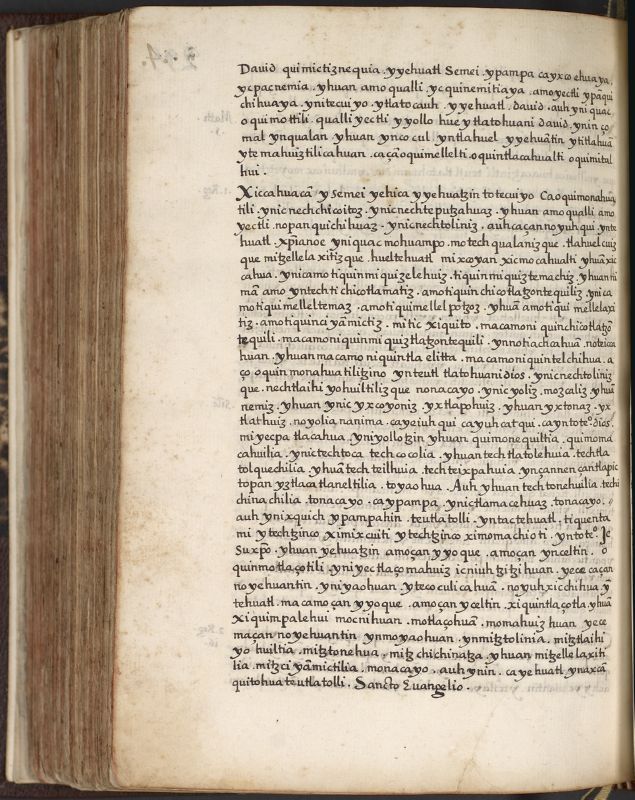 Dauid quimictiznequia. yyehuatl Semei. ypampa cayxco ehuaya.
ycpacnemia. yhuan amo qualli yc quinemitiaya. amo yectli ypā qui
chihuaya. ynitecuiyo. ytlatocauh. yyehuatl. dauid. auh yniquac
oquimottili. qualli yectli. yyollo hueytlatohuani dauid. ynin ço
mal ynqualan yhuan yncocul. yntlahuel yyehuātin ytitlahuā
ytemahuiztilicahuan. caçā oquimellelti. oquintlacahualti oquimital
hui.
Xiccahuacā y semei yehica yyehuatzin totecuiyo Ca oquimonahua
tili. ynic nechchicoitoz. ynic nechteputzahuaz. yhuan amo qualli amo
yectli. nopan quichihuaz. ynic nechtoliniz. auh caçan noyuh qui. ynte
huatl. xp̄ianoe yniquac mohuampo. motech qualanizque. tlahuelcuiz
que mitzellelaxitizque. hueltehuatl mixcoyan xicmocahualti yhuā xic
cahua. ynicamo tiquinmiquizelehuiz. tiquinmiquiztemachiz. yhuan ni
man amo yntechtichicotlamatiz. amo tiquinchicotlatzontequiliz. ynica
motiquimelleltemaz. amo tiquimellelpotzoz. yhuā amo tiquimellelaxi
tiz. amo tiquinciyāmictiz. mitic xiquito. macamo niquinchicotlatzō
tequili. macamo niquinmiquiztlatzontequili. ynnotiachcahuā noteicca
huan. yhuan macamo niquintlaelitta. macamo niquintelchihua. a
ço oquinmonahuatilitzino ynteutl tlatohuani dios. ynic nechtoliniz
que. nechtlaihiyohuiltilizque nonacayo. ynic yoliz. mozcaliz. yhuā
nemiz. yhuan ynic yxcoyoniz yxtlapohuiz. yhuan yxtonaz. yx
tlathuiz. noyolia nanima. ca yeiuhqui ca yuhcatqui. ca yntoteo. dios.
miyecpa tlacahua. yniyollotzin yhuan quimonequiltia. quimoma
cahuilia. ynic techtoca techcocolia. yhuan techtlatolehuia. techtla
tolquechilia. yhuā techteilhuia. techteixpahuia ynçannen çantlapic
topan yztlacatlaneltilia. toyaohua. Auh yhuan techtonehuilia. techi
chinachilia. tonacayo. ca ypampa. ynic tlamacehuaz. tonacayo.
auh ynixquich ypampahin teutlatolli. yntactehuatl. tiquenta
mi ytechtzinco ximixcuiti ytechtzinco ximomachioti. yntoto. Je
su xp̄o. yhuan yehuatzin amoçan yyoque. amoçan ynceltin. o
quinmotlaçotili. yniyectlaçomahuizicniuhtzitzihuan. yece caçan
no yehuantin. yniyaohuan. ytecoculicahuā. noyuh xicchihua ȳ
tehuatl. macamo çan yyoque. amoçan yceltin. xiquintlaçotla yhuā
xiquimpalehui mocnihuan. motlaçohuā. momahuizhuan yece
maçan no yehuantin ynmoyaohuan. ynmitztolinia. mitztlaihi
yohuiltia. mitztonehua. mitzchichinatza. yhuan mitzellelaxiti
lia. mitzciyāmictilia. monacayo. auh ynin. ca yehuatl ynaxcā
quitohua teutlatolli. Sancto Euangelio.